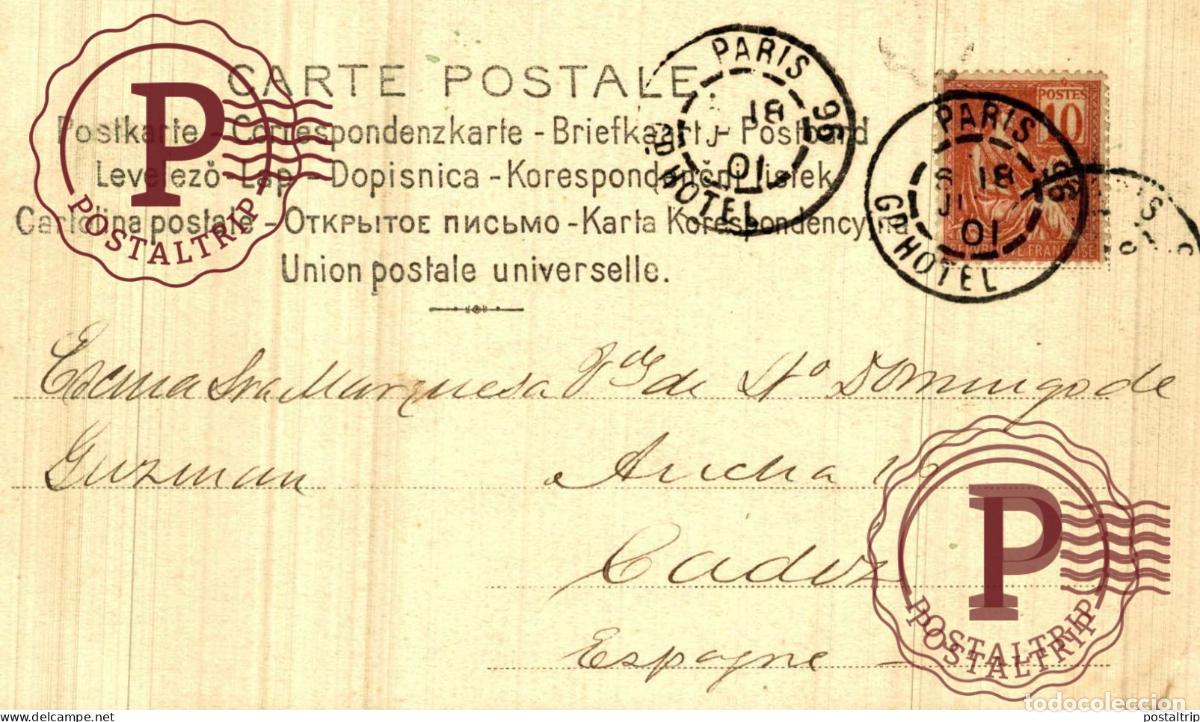 CARTE POSTALE
Postkarte - Correspondenzkarte - Briefkaart - Postcard
Levelező-Lap - Dopisnica - Korespondenční lístek
Cartolina postale - Открытое письмо - Karta Korespondencyjna
Union postale universelle.
PARIS 96
18
01
GD HOTEL
PARIS 96
18
01
GD HOTEL
POSTES
10
REPUBLIQUE FRANÇAISE
Excma Sra Marquesa Vda de Sto Domingo de
Guzman Ancha 16
Cadiz
Espagne
P
POSTALTRIP
P
POSTALTRIP
POSTALTRIP
todocoleccion
www.delcampe.net
postaltrip